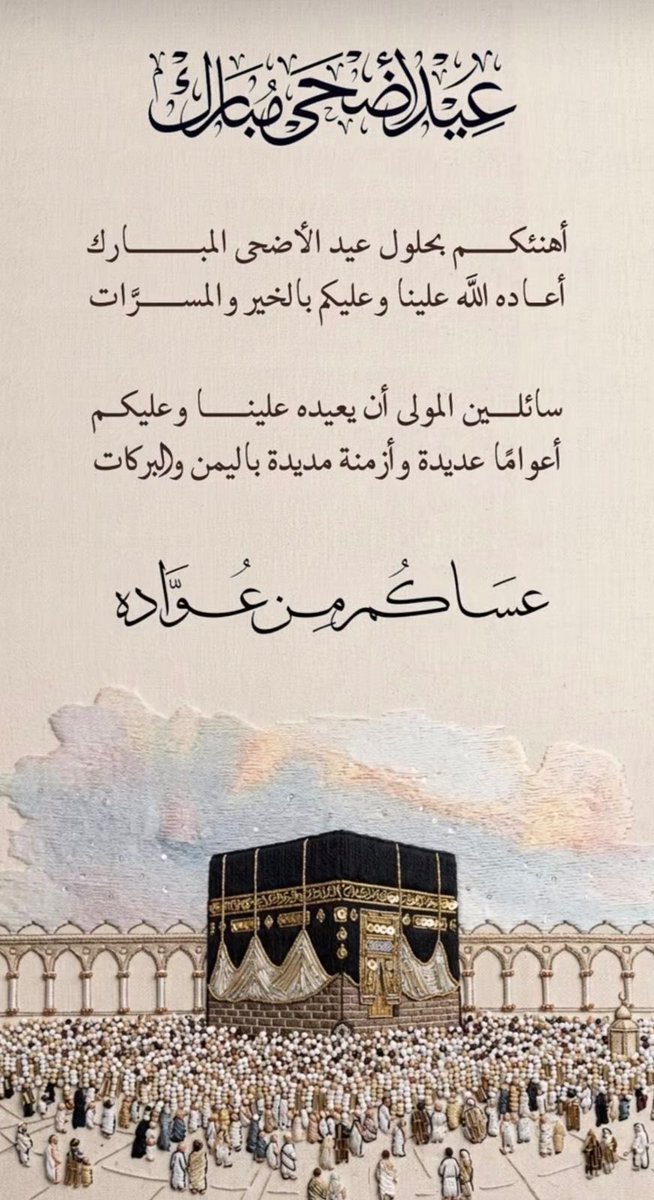 عِيدُ أَضْحَى مُبَارَك
أهنئكـــم بحلول عيد الأضحى المبـــــارك
أعـاده اللَّه علينا وعليكم بالخير والمســـرَّات
سائلـــين المولى أن يعيده علينـــا وعليكـم
أعوامًا عديدة وأزمنة مديدة باليمن والبركات
عسَـاكُم مِـن عُـوَّاده